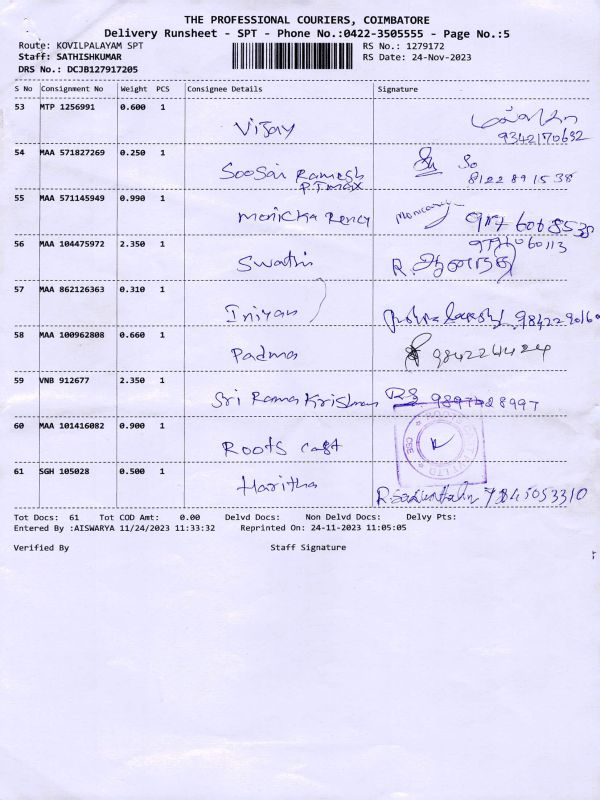 THE PROFESSIONAL COURIERS, COIMBATORE
Delivery Runsheet - SPT - Phone No.:0422-3505555 - Page No.:5
Route: KOVILPALAYAM SPT RS No.: 1279172
Staff: SATHISHKUMAR RS Date: 24-Nov-2023
DRS No.: DCJB127917205
S No Consignment No Weight PCS Consignee Details Signature
53 MTP 1256991 0.600 1
Vijay
9342170692
54 MAA 571827269 0.250 1
Soosai Ramesh
PTmax 8122891538
55 MAA 571145949 0.990 1
Monicka Rency
56 MAA 104475972 2.350 1
Swathi
57 MAA 862126363 0.310 1
Iniyan
58 MAA 100962808 0.660 1
Padma
59 VNB 912677 2.350 1
Sri Rama Krishnan RS
60 MAA 101416082 0.900 1
Roots cast
61 SGH 105028 0.500 1
Haritha
9845053310
Tot Docs: 61 Tot COD Amt: 0.00 Delvd Docs: Non Delvd Docs: Delvy Pts:
Entered By :AISWARYA 11/24/2023 11:33:32 Reprinted On: 24-11-2023 11:05:05
Verified By Staff Signature